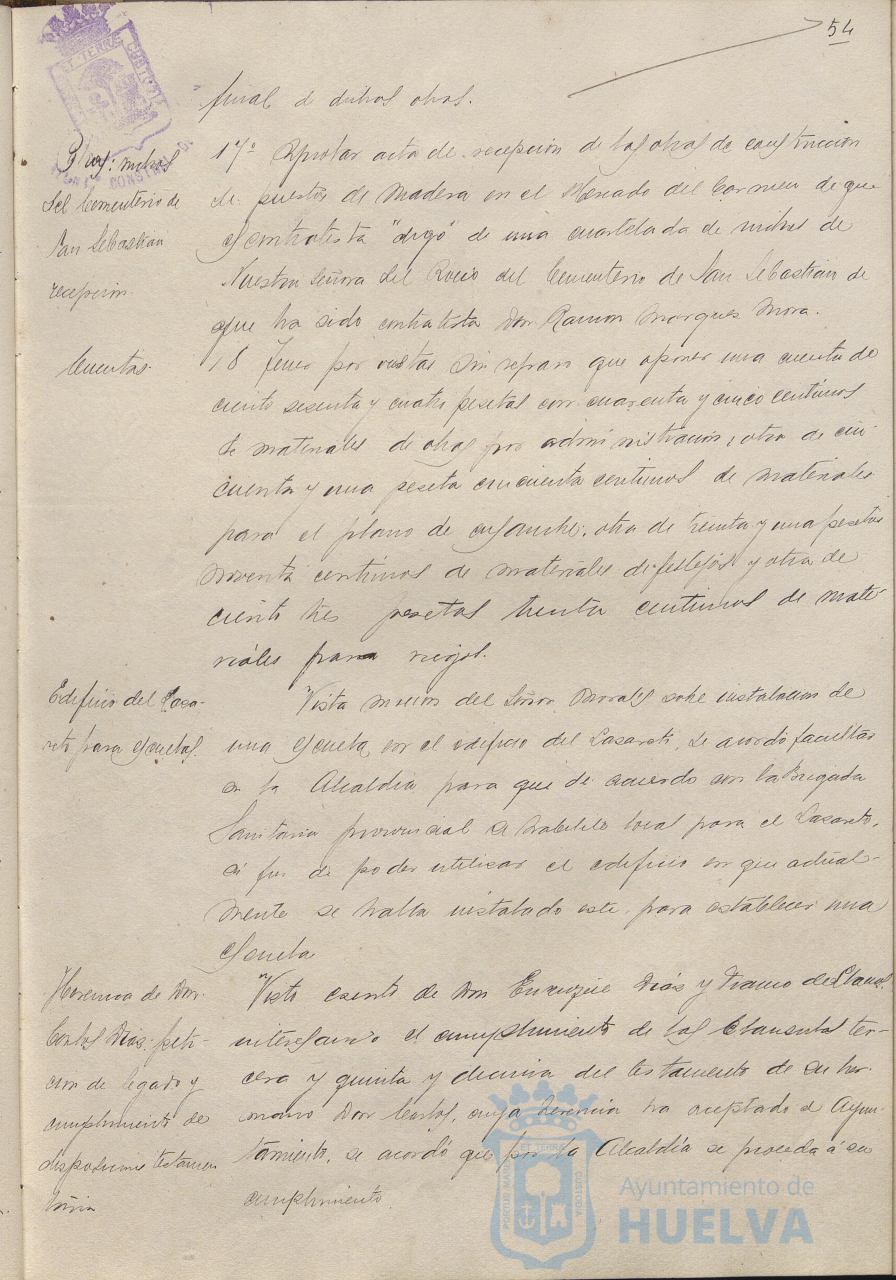 54
final de dichas obras.
Obras: nichos
del Cementerio de
San Sebastián
recepción.
17º Aprobar acta de recepción de las obras de construcción
de puestos de madera en el Mercado del Carmen de que
es contratista "digo" de una cuartelada de nichos de
Nuestra Señora del Rocio del Cementerio de San Sebastián de
que ha sido contratista Don Ramon Marques Mora.
Cuentas.
18 Tener por vistas sin reparo que oponer una cuenta de
ciento sesenta y cuatro pesetas con cuarenta y cinco centimos
de materiales de obras por administración, otra de cin-
cuenta y una peseta cincuenta centimos de materiales
para el plano de ensanche, otra de treinta y una pesetas
noventa centimos de materiales de festejos y otra de
ciento tres pesetas treinta centimos de mate-
riales para riegos.
Edificio del Laza-
reto para escuelas.
Vista moción del Señor Morales sobre instalación de
una escuela en el edificio del Lazareto, se acordó facultar
a la Alcaldía para que de acuerdo con la Brigada
Sanitaria provincial se habilite local para el Lazareto,
a fin de poder utilizar el edificio en que actual-
mente se halla instalado este, para establecer una
escuela
Herencia de Don
Carlos Díaz: peti-
cion de legado y
cumplimiento de
disposiciones testamen
taria
Visto escrito de Don Enrique Díaz y Franco de Llanos
interesando el cumplimiento de las clausulas ter-
cera y quinta y decima del testamento de su her-
mano Don Carlos, cuya herencia ha aceptado el Ayun-
tamiento, se acordó que por la Alcaldía se proceda á su
cumplimiento.
PORTUS MARIS ET TERRE CUSTODIA
Ayuntamiento de
HUELVA